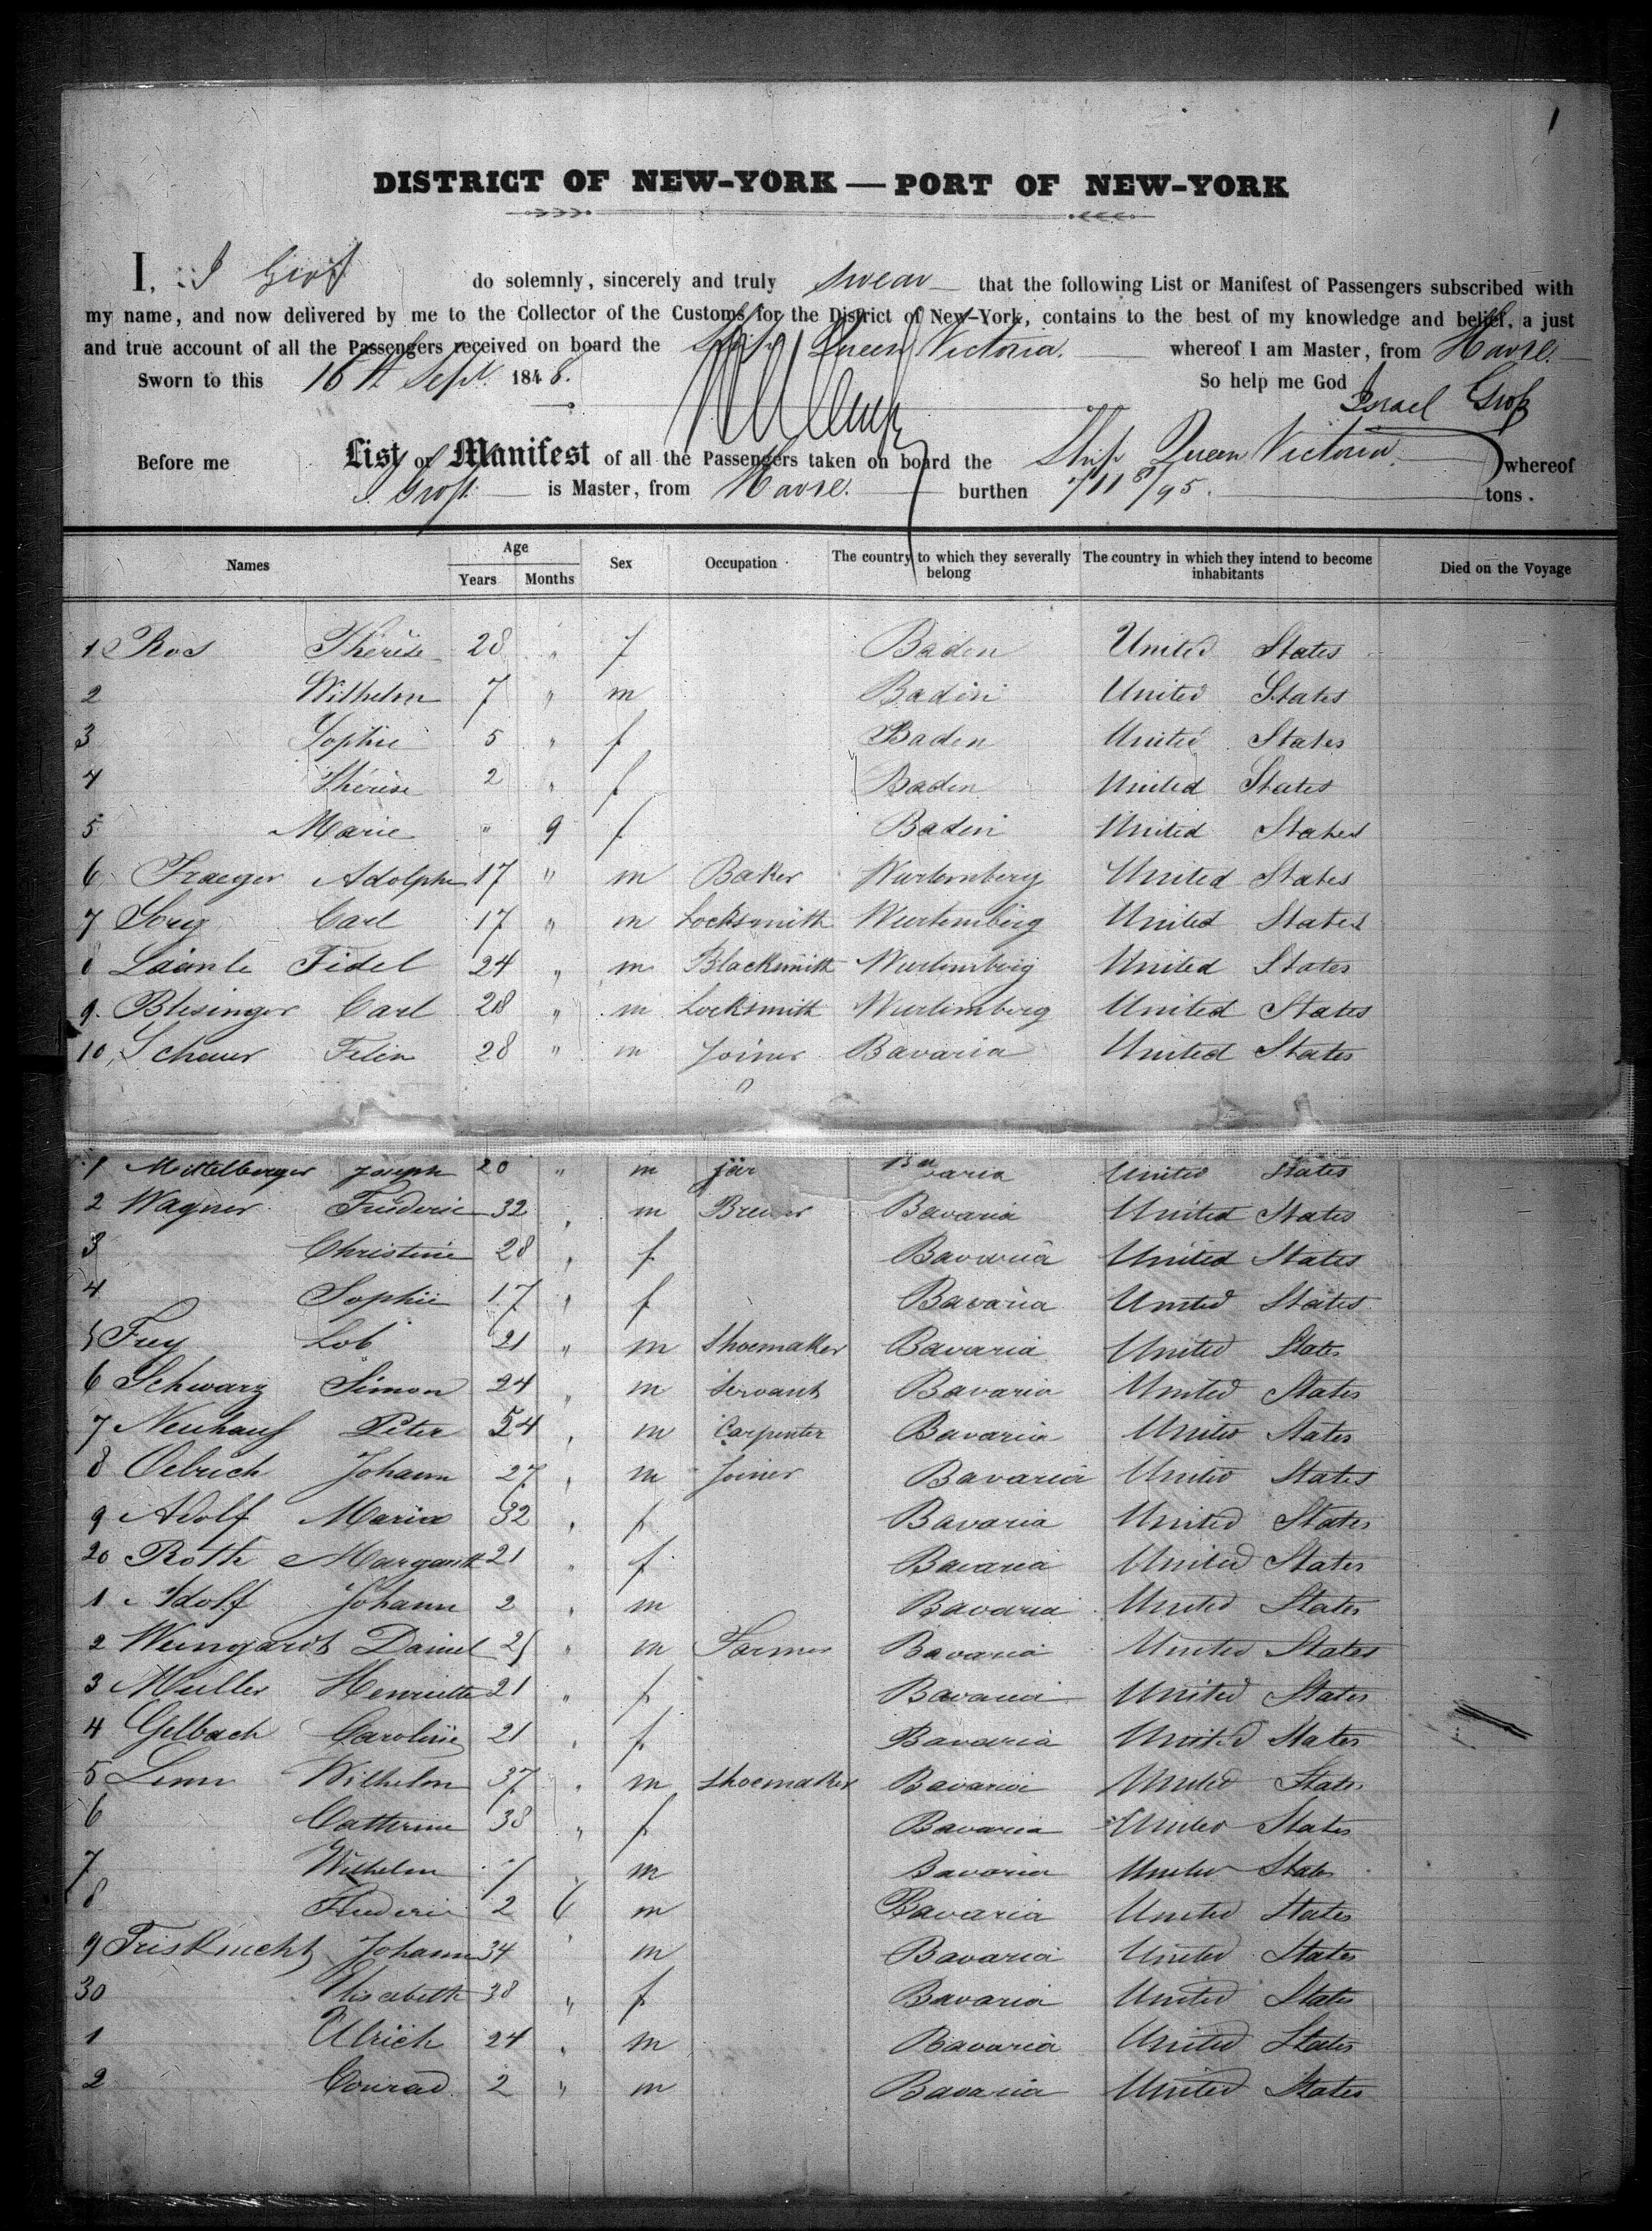 1
DISTRICT OF NEW-YORK — PORT OF NEW-YORK
I, I Groß do solemnly, sincerely and truly swear that the following List or Manifest of Passengers subscribed with
my name, and now delivered by me to the Collector of the Customs for the District of New-York, contains to the best of my knowledge and belief, a just
and true account of all the Passengers received on board the Ship Queen Victoria. whereof I am Master, from Havre.
Sworn to this 16th Sept. 1848. So help me God
Israel Groß
Before me List or Manifest of all the Passengers taken on board the Ship Queen Victoria. whereof
I Groß is Master, from Havre. burthen 711 8/95. tons.
Names Age Years Months Sex Occupation The country to which they severally belong The country in which they intend to become inhabitants Died on the Voyage
1 Ros Thérèse 28 " f Baden United States
2 Wilhelm 7 " m Baden United States
3 Sophie 5 " f Baden United States
4 Thérèse 2 " f Baden United States
5 Marie " 9 f Baden United States
6 Traeger Adolphe 17 " m Baker Wurtemberg United States
7 Carl 17 " m Locksmith Wurtemberg United States
8 Fidel 24 " m Blacksmith Wurtemberg United States
9. Blesinger Carl 28 " m Locksmith Wurtemberg United States
10 Scheuer 28 " m Joiner Bavaria United States
1 Mittelberger Joseph 20 " m Bavaria United States
2 Wagner Frederic 32 " m Brewer Bavaria United States
3 Christine 28 " f Bavaria United States
4 Sophie 17 " f Bavaria United States
5 Frey Lob 21 " m Shoemaker Bavaria United States
6 Schwarz Simon 24 " m Servant Bavaria United States
7 Neuhauf Peter 54 " m Carpenter Bavaria United States
8 Oelrich Johann 27 " m Joiner Bavaria United States
9 Adolf Maria 32 " f Bavaria United States
20 Roth Margareth 21 " f Bavaria United States
1 Adolf Johann 2 " m Bavaria United States
2 Weingardt Daniel 25 " m Farmer Bavaria United States
3 Muller Henriette 21 " f Bavaria United States
4 Gelbach Caroline 21 " f Bavaria United States
5 Lenn Wilhelm 37 " m Shoemaker Bavaria United States
6 Catherine 38 " f Bavaria United States
7 Wilhelm 7 " m Bavaria United States
8 Frederic 2 6 m Bavaria United States
9 Frisknecht Johann 34 " m Bavaria United States
30 Elisabeth 38 " f Bavaria United States
1 Ulrich 24 " m Bavaria United States
2 Conrad 2 " m Bavaria United States